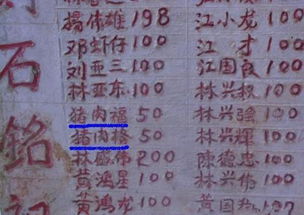 石
銘
楊偉雄 198
邓虾仔 100
刘亚三 100
林亚东 100
猪肉福 50
猪肉格 50
林 伟 200
黄鸿星 100
黄鴻龙 100
江小龙 100
江 才 100
江国良 100
林兴权 100
林兴強 100
林兴輝 100
陳德忠 100
林兴伟 100
黄国